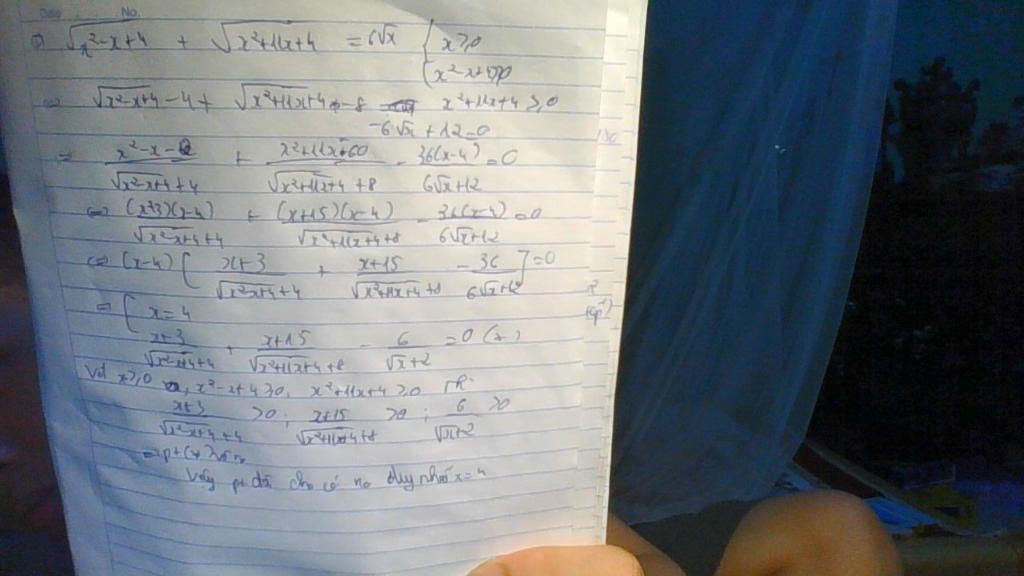 Day No.
√x²-x+4 + √x²+11x+4 = 6√x { x≥0
{ x²-x+4≥0
⇔ √x²-x+4 - 4 + √x²+11x+4 - 8 x²+11x+4≥0
-6√x + 12 = 0
⇒ x²-x-12/√x²-x+4+4 + x²+11x-60/√x²+11x+4+8 - 36(x-4)/6√x+12 = 0
⇔ (x+3)(x-4)/√x²-x+4+4 + (x+15)(x-4)/√x²+11x+4+8 - 36(x-4)/6√x+12 = 0
⇔ (x-4) [ x+3/√x²-x+4+4 + x+15/√x²+11x+4+8 - 36/6√x+12 ] = 0
⇒ [ x=4
x+3/√x²-x+4+4 + x+15/√x²+11x+4+8 - 6/√x+2 = 0 (*)
Với x≥0, x²-x+4≥0, x²+11x+4≥0
x+3/√x²-x+4+4 >0; x+15/√x²+11x+4+8 >0; 6/√x+2 >0
⇒ pt (*) vô no
Vậy pt đã cho có no duy nhất x=4